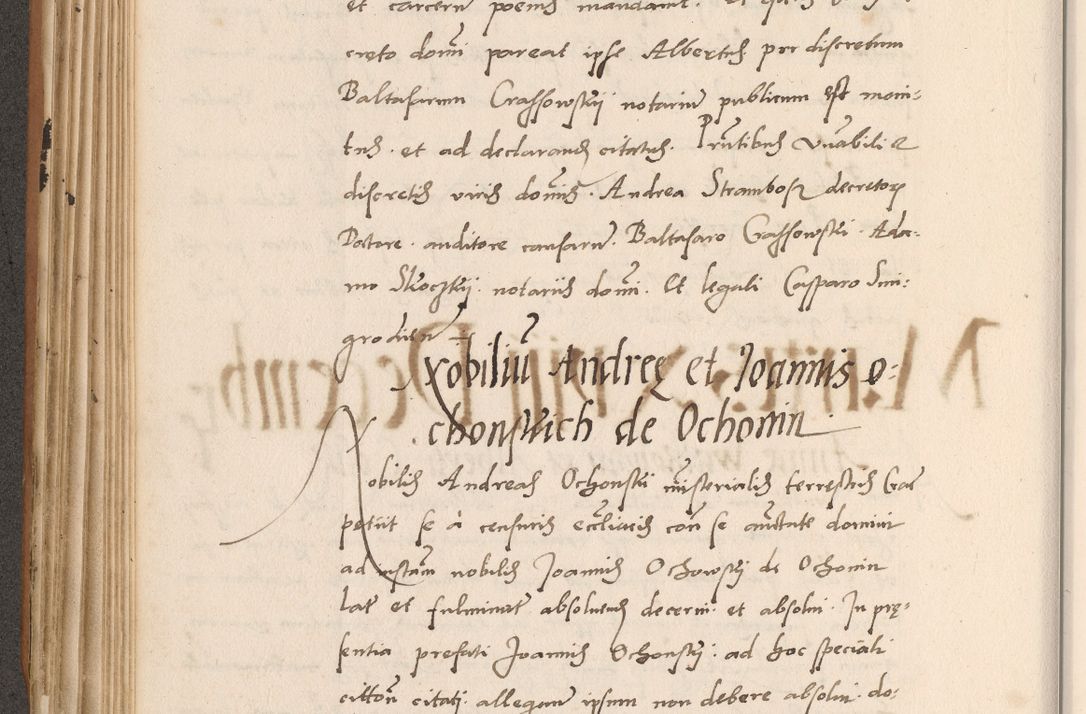 et carcerum poenis mandamus. Et
creto domini pareat ipse Albertus per discretum
Baltasarum Crassowskii notarium publicum est moni-
tus. et ad declarandum citatus. Presentibus venerabili et
discretis viris dominis. Andrea Strambosz decretorum
Doctore. auditore causarum. Baltasaro Crassowskii. Ada-
mo Skoczkij. notariis domini. Et legali Casparo Smi-
grodien
Nobilium Andreę et Joannis O-
chonskich de Ochonin
Nobilis Andreas Ochonskii ministerialis terrestris Crac
petiit se à censuris ecclesiasticis contra se auctoritate domini
ad instantiam nobilis Joannis Ochowskij de Ochonin
latis et fulminatis absolvendum decerni. et absolvi. In pre-
sentia prefati Joannis Ochonskij. ad hoc speciali
citatione citati. allegantis ipsum non debere absolvi. do-